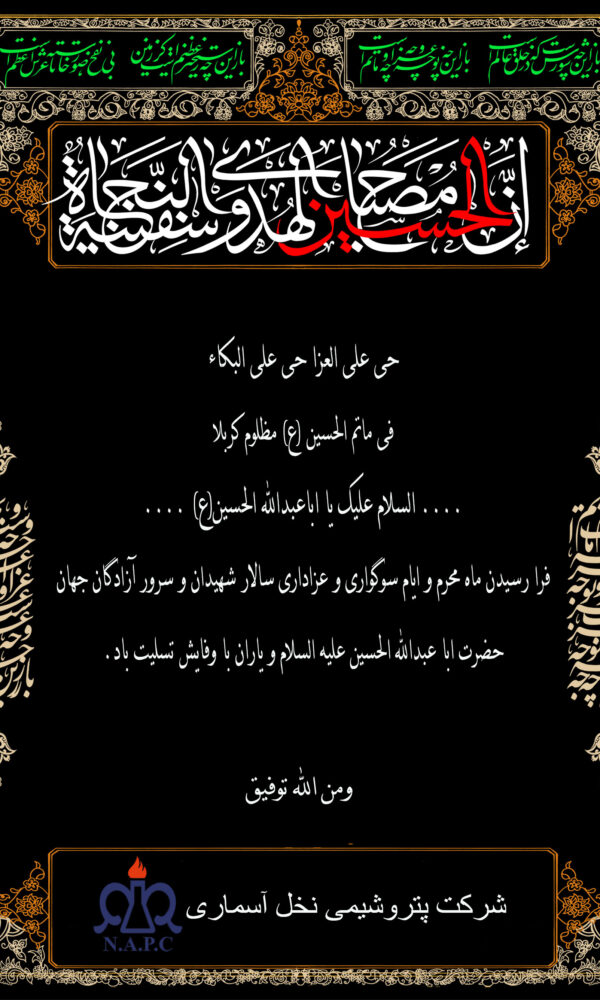 باز این چه شورش است که در خلق عالم است
باز این چه نوحه و چه عزا و چه ماتم است
باز این چه رستخیز عظیم است کز زمین
بی نفخ صور خاسته تا عرش اعظم است
إنَّ الحسین مصباح الهدی و سفینة النَّجاة
حی علی العزا حی علی البکاء
فی ماتم الحسین (ع) مظلوم کربلا
.... السلام علیک یا اباعبدالله الحسین(ع) ....
فرا رسیدن ماه محرم و ایام سوگواری و عزاداری سالار شهیدان و سرور آزادگان جهان
حضرت ابا عبدالله الحسین علیه السلام و یاران با وفایش تسلیت باد .
ومن الله توفیق
شرکت پتروشیمی نخل آسماری
N.A.P.C